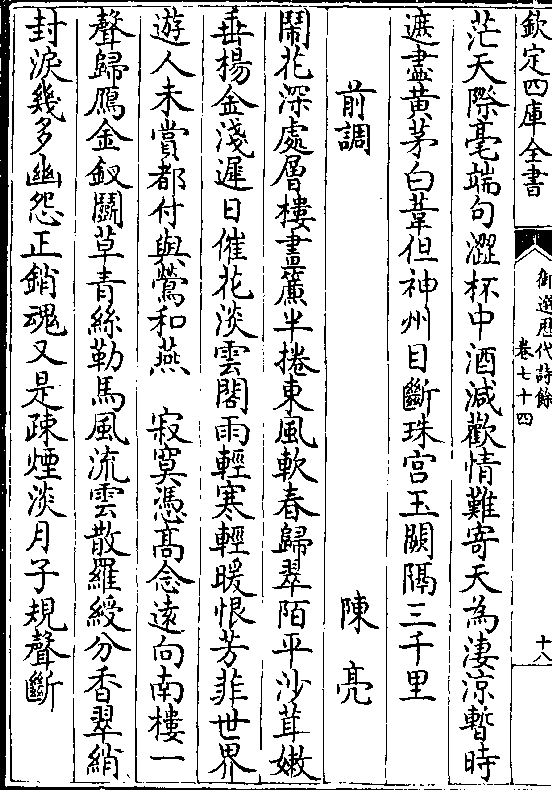 欽定四庫全書
御選歷代詩餘
卷七十四
十八
茫天際毫端句澀杯中酒減歡情難寄天為淒涼暫時
遮盡黃茅白葦但神州目斷珠宮玉闕隔三千里
前調　陳亮
鬧花深處層樓畫簾半捲東風軟春歸翠陌平沙茸嫩
垂楊金淺遲日催花淡雲閣雨輕寒輕暖恨芳菲世界
遊人未賞都付與鶯和燕　寂寞憑高念遠向南樓一
聲歸鴈金釵鬬草青絲勒馬風流雲散羅綬分香翠綃
封淚幾多幽怨正銷魂又是疎煙淡月子規聲斷